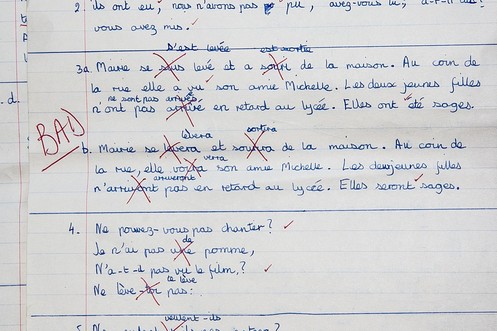 2. ils ont eu, nous n'avons pas pu, avez-vous lu, a-t-il
vous avez mis.
s'est levée est sortie
3a. Marie se suis levé et a sorti de la maison. Au coin de
la rue elle a vu son amie Michelle. Les deux jeunes filles
ne sont pas arrivés
n'ont pas arrivé en retard au lycée. Elles ont été sages.
BAD
lèvera sortira
b. Marie se levera et soutira de la maison. Au coin de
verra
la rue, elle voira son amie Michelle. Les deux jeunes filles
arriveront
n'arrivont pas en retard au lycée. Elles seront sages.
d.
4. Ne pouvez-vous pas chanter?
de
Je n'ai pas une pomme,
N'a-t-il pas vu le film,?
te lève
Ne lève-toi pas:
veulent-ils
5.